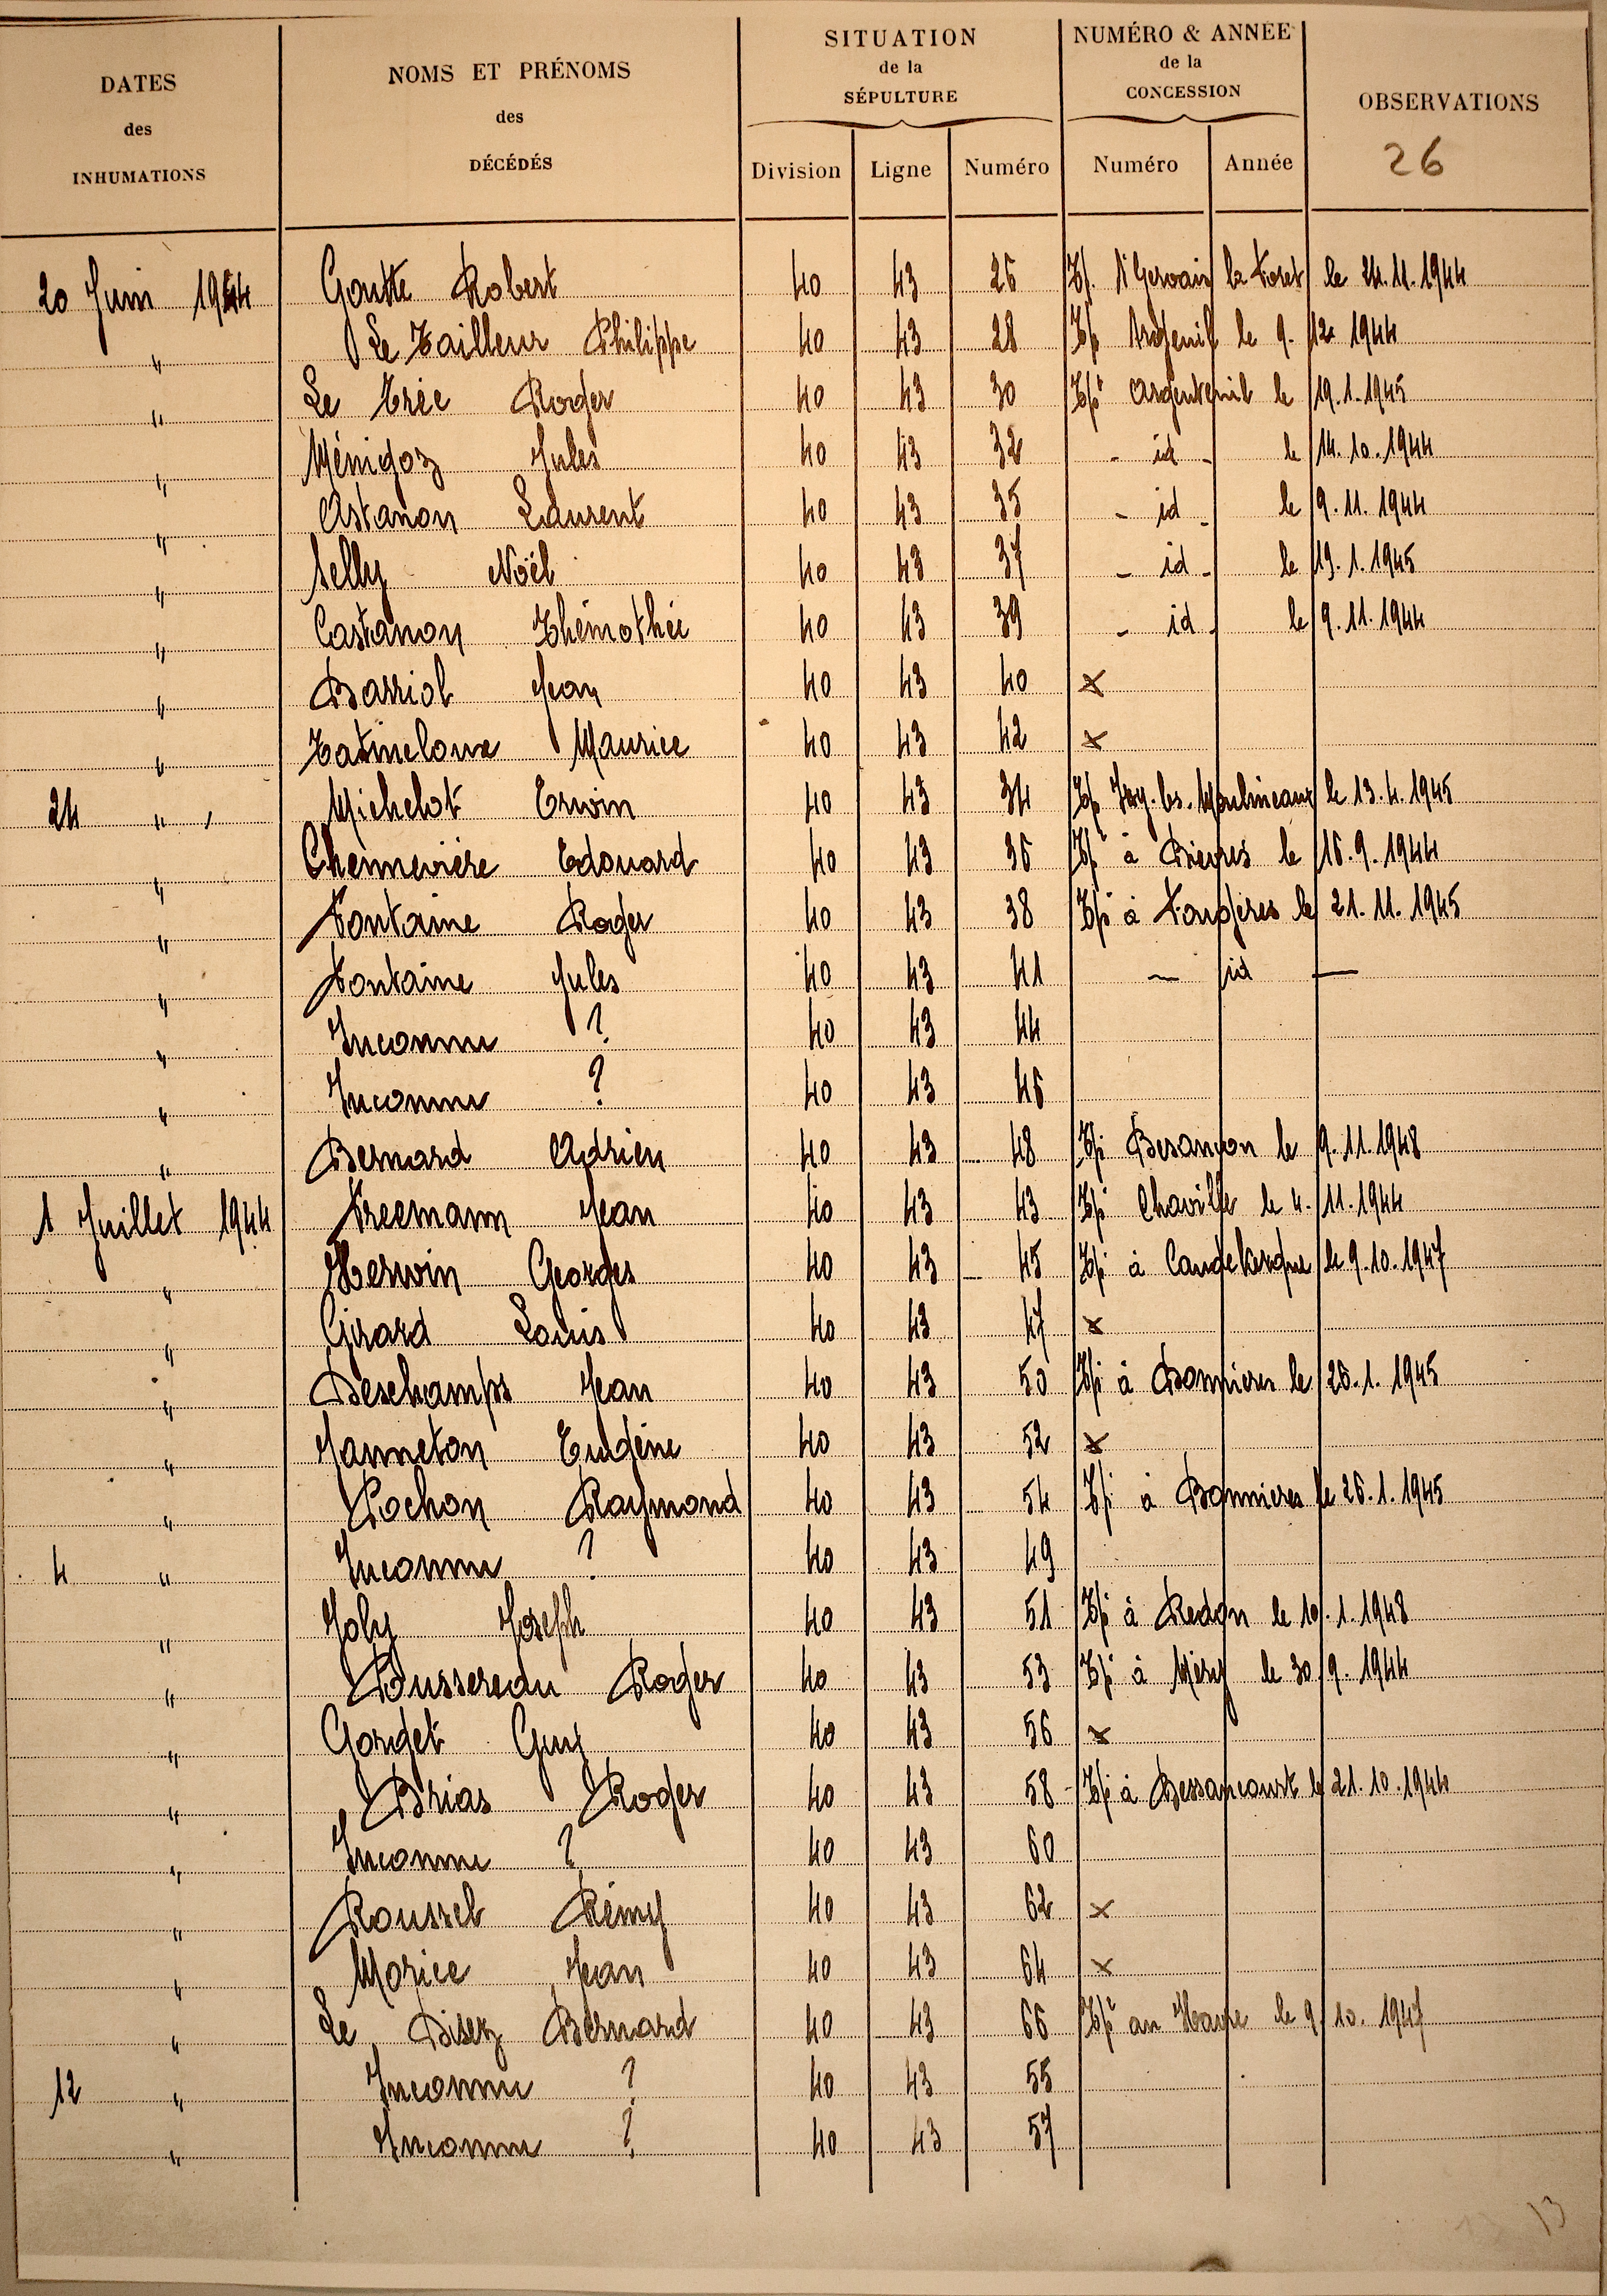 DATES des INHUMATIONS
NOMS ET PRÉNOMS des DÉCÉDÉS
SITUATION de la SÉPULTURE
NUMÉRO & ANNÉE de la CONCESSION
OBSERVATIONS
26
Division Ligne Numéro Numéro Année
20 Juin 1944 Goutte Robert 40 43 26 Tpé St Gervais la Foret le 24.11.1944
" Le Tailleur Philippe 40 43 28 Tpé Argenil le 9. 12 1944
" Le Trée Roger 40 43 30 Tpé Argenteuil le 19.1.1945
" Ménigoz Jules 40 43 32 - id - le 14.10.1944
" Astanon Laurent 40 43 35 - id - le 9.11.1944
" Selly Noël 40 43 37 - id - le 19.1.1945
" Castanon Thémothée 40 43 39 - id - le 9.11.1944
" Barriol Jean 40 43 40 x
" Maurice 40 43 42 x
24 " Michelot Erwin 40 43 34 Tpé Issy-les-Moulineaux le 13.4.1945
" Chennevière Edouard 40 43 36 Tpé à Bievres le 16.9.1944
" Fontaine Roger 40 43 38 Tpé à Fougères le 21.11.1945
" Fontaine Jules 40 43 41 — id —
" Inconnu ? 40 43 44
" Inconnu ? 40 43 46
" Bernard Adrien 40 43 48 Tpé Besançon le 9.11.1948
1 Juillet 1944 Freemann Jean 40 43 43 Tpé Chaville le 4. 11.1944
" Herwin Georges 40 43 45 Tpé à Caudekerque le 9.10.1947
" Girard Louis 40 43 47 x
" Deschamps Jean 40 43 50 Tpé à Bonnieres le 26.1.1945
" Janneton Eugène 40 43 52 x
" Pochon Raymond 40 43 54 Tpé à Bonnieres le 26.1.1945
4 " Inconnu ? 40 43 49
" Joly Joseph 40 43 51 Tpé à Redon le 10.1.1948
" Bussereau Roger 40 43 53 Tpé à Méry le 30.9.1944
" Gorget Guy 40 43 56 x
" Brias Roger 40 43 58 Tpé à Bessancourt le 21.10.1944
" Inconnu ? 40 43 60
" Roussel Rémy 40 43 62 x
" Morice Jean 40 43 64 x
" Le Bisez Bernard 40 43 66 Tpé au Havre le 9.10.1947
12 " Inconnu ? 40 43 55
" Inconnu ? 40 43 57
13